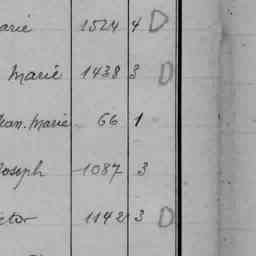 arie 1524 4 D
Marie 1438 3 D
ean. Marie 66 1
Joseph 1087 3
ctor 1142 3 D